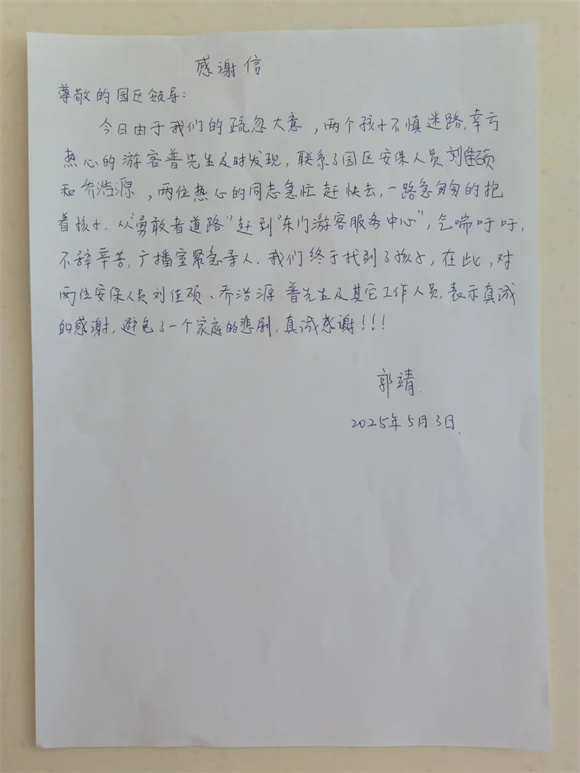 感谢信
尊敬的园区领导：
今日由于我们的疏忽大意，两个孩子不慎迷路，幸亏
热心的游客普先生及时发现，联系了园区安保人员刘佳硕
和乔浩源，两位热心的同志急忙赶快去，一路急匆匆的抱
着孩子，从“勇敢者道路”赶到“东门游客服务中心”，气喘吁吁，
不辞辛苦，广播室紧急寻人，我们终于找到了孩子，在此，对
两位安保人员刘佳硕、乔浩源、普先生及其它工作人员，表示真诚
的感谢，避免了一个家庭的悲剧，真诚感谢！！！
郭靖
2025年5月3日